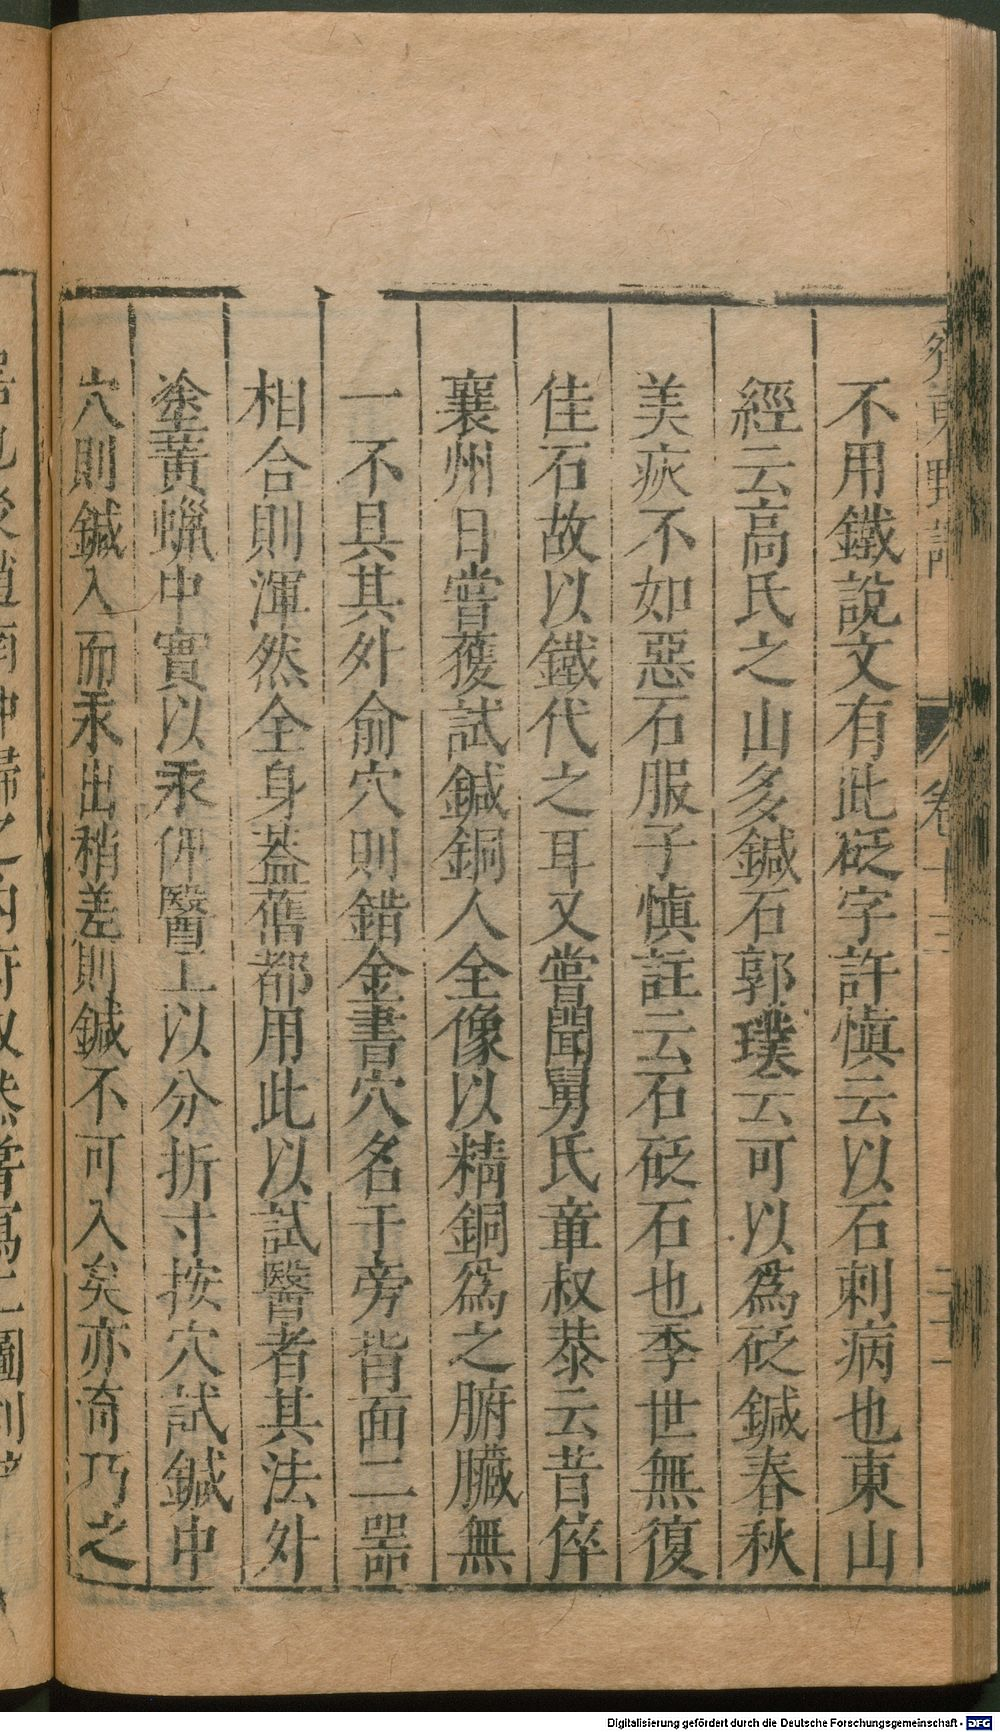 齊東野語
卷十
不用鐵說文有此砭字許慎云以石刺病也東山
經云高氏之山多鍼石郭璞云可以爲砭鍼春秋
美疢不如惡石服子愼註云石砭石也季世無復
佳石故以鐵代之耳又嘗聞舅氏章叔恭云昔倅
襄州日嘗獲試鍼銅人全像以精銅爲之腑臟無
一不具其外俞穴則錯金書穴名于旁背面二器
相合則渾然全身蓋舊都用此以試醫者其法外
塗黃蠟中實以汞俾醫工以分折寸按穴試鍼中
穴則鍼入而汞出稍差則鍼不可入矣亦奇巧之
Digitalisierung gefördert durch die Deutsche Forschungsgemeinschaft - DFG